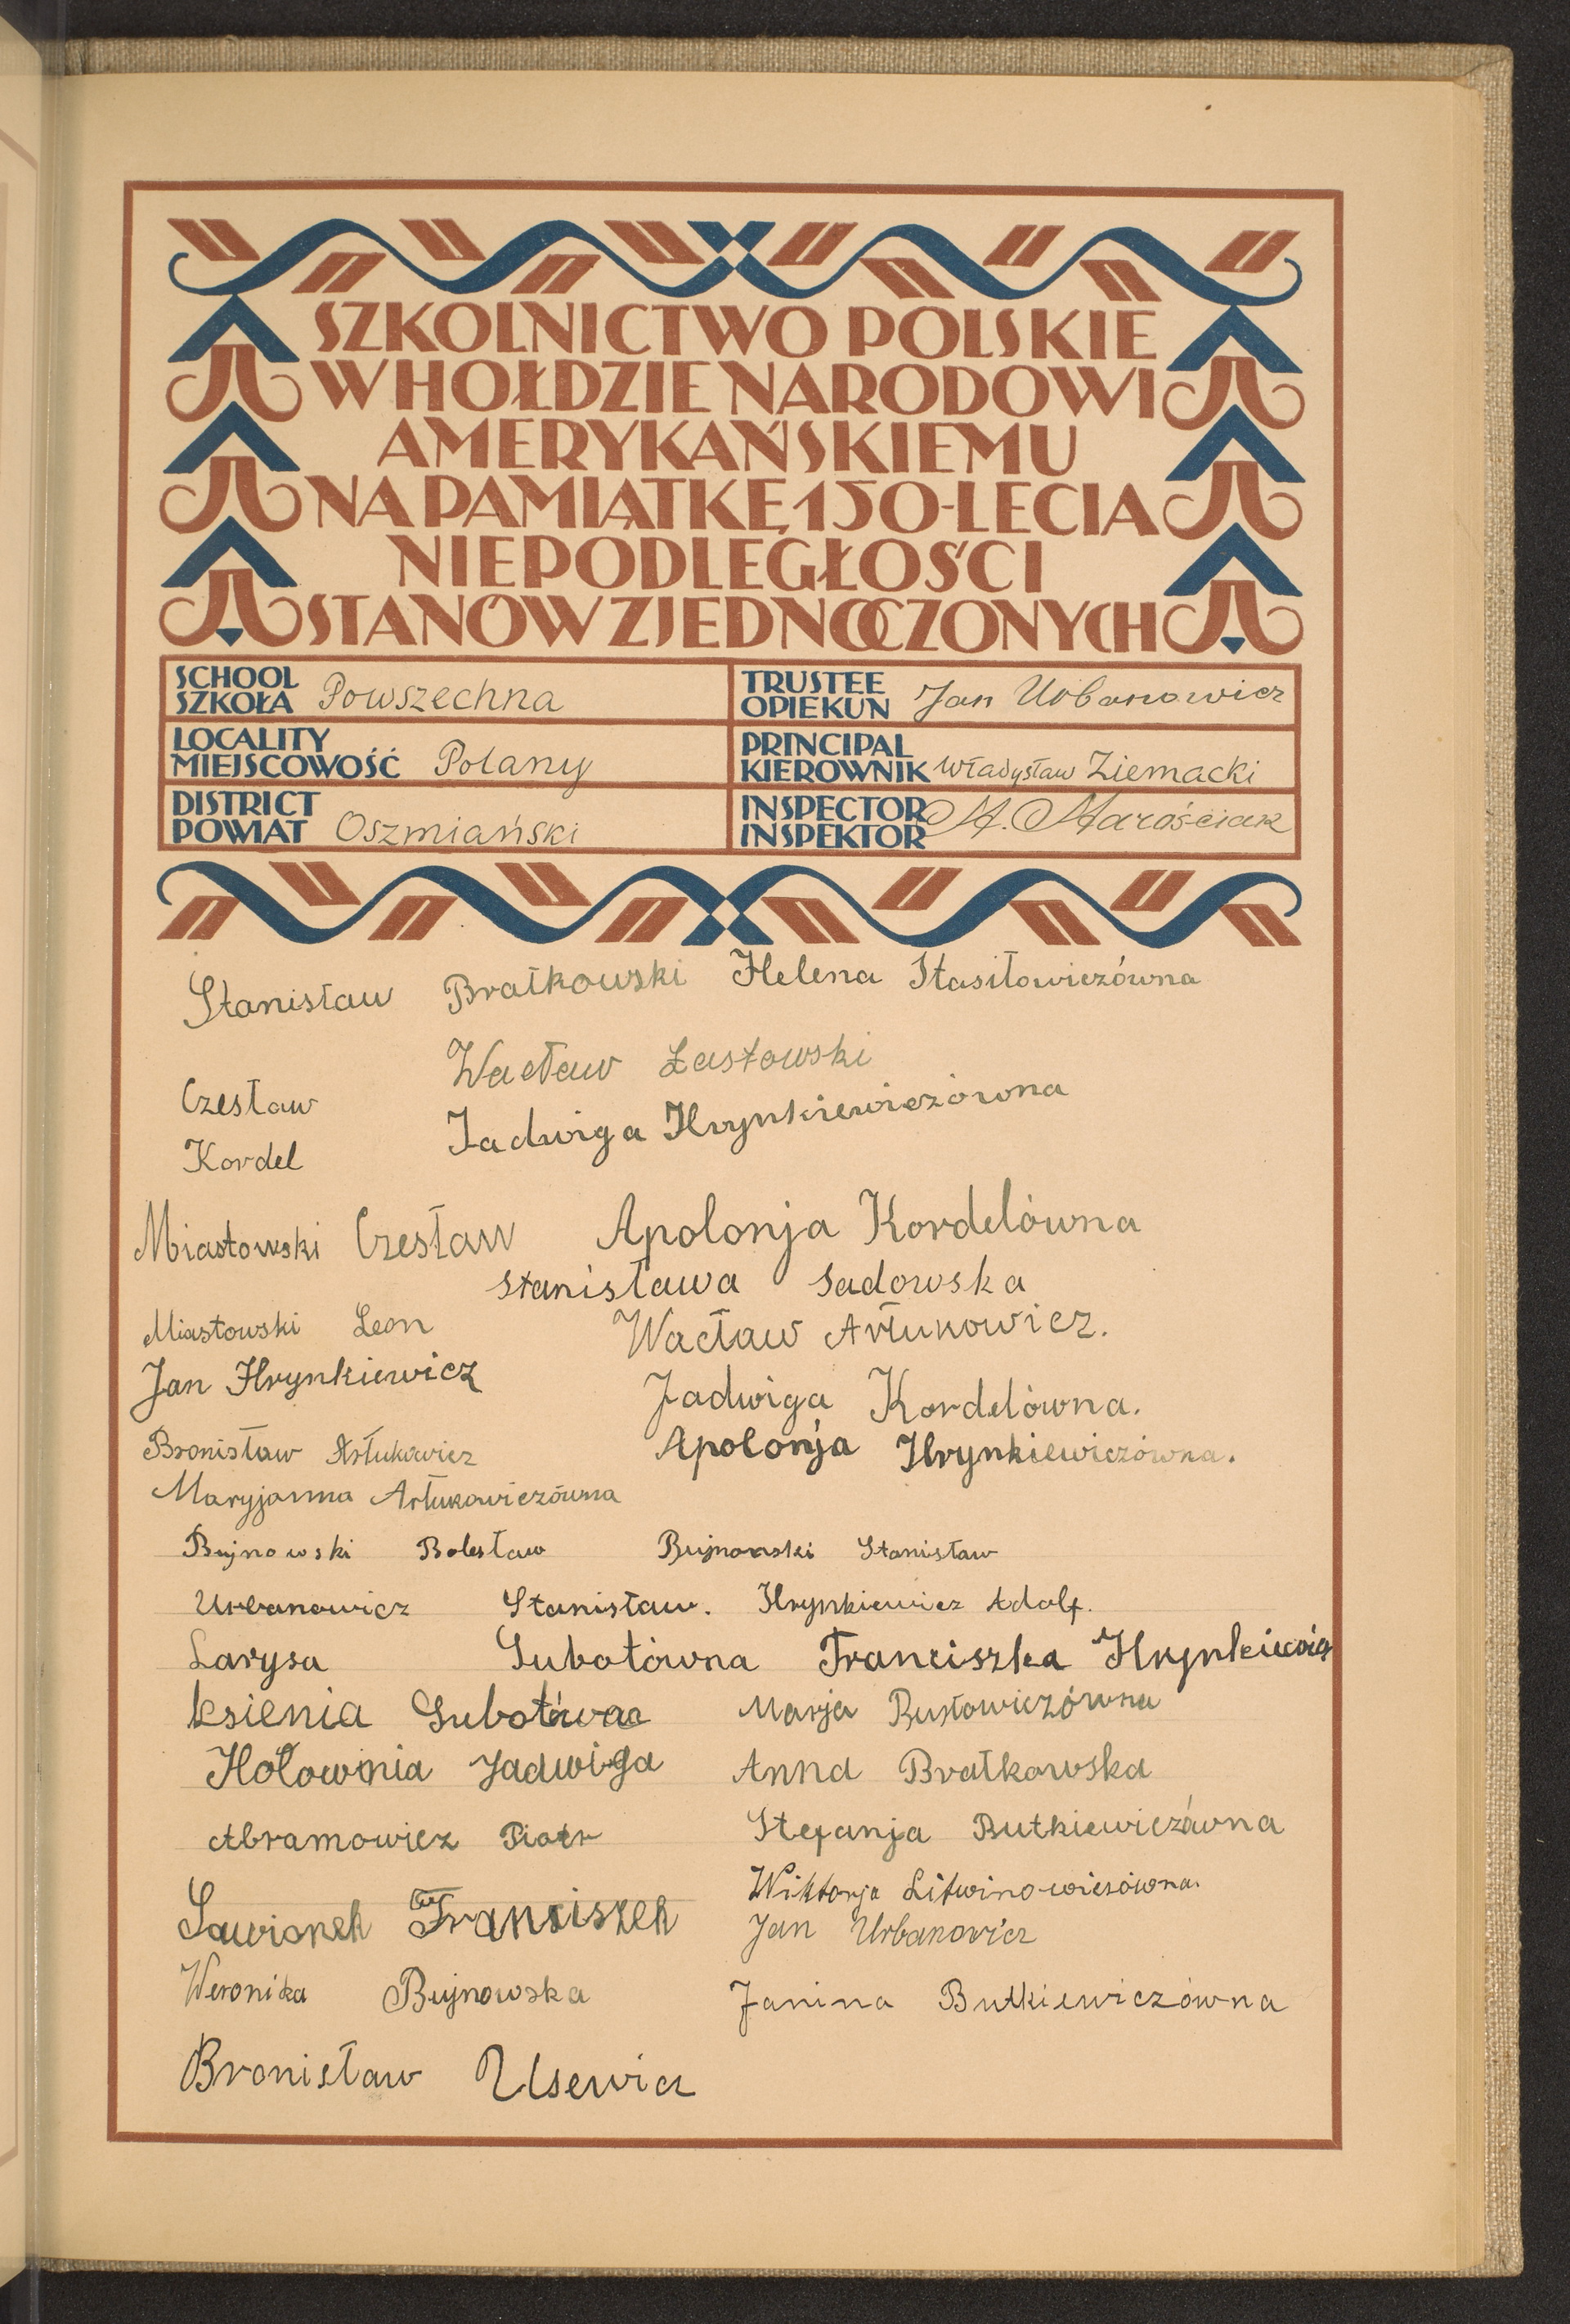 SZKOLNICTWO POLSKIE
W HOŁDZIE NARODOWI
AMERYKAŃSKIEMU
NA PAMIĄTKĘ 150-LECIA
NIEPODLEGŁOŚCI
STANÓW ZJEDNOCZONYCH
SCHOOL
SZKOŁA Powszechna
TRUSTEE
OPIEKUN Jan Urbanowicz
LOCALITY
MIEJSCOWOŚĆ Polany
PRINCIPAL
KIEROWNIK Władysław Ziemacki
DISTRICT
POWIAT Oszmiański
INSPECTOR
INSPEKTOR M. Marościak
Stanisław Bratkowski Helena Stasiłowiczówna
Wacław Łastowski
Czesław
Jadwiga Hrynkiewiczówna
Kordel
Miastowski Czesław Apolonja Kordelówna
Stanisława Sadowska
Miastowski Leon Wacław Artukowicz.
Jan Hrynkiewicz Jadwiga Kordelówna.
Bronisław Artukowicz Apolonja Hrynkiewiczówna.
Maryjanna Artukowiczówna
Bujnowski Bolesław Bujnowski Stanisław
Urbanowicz Stanisław. Hrynkiewicz Adolf.
Larysa Gubotówna Franciszka Hrynkiewicz
Ksienia Gubotówna Marja Rusłowiczówna
Hołownia Jadwiga Anna Bratkowska
Abramowicz Piotr Stefanja Butkiewiczówna
Wiktorja Litwinowiczówna.
Sawionek Franciszek Jan Urbanowicz
Weronika Bujnowska Janina Butkiewiczówna
Bronisław Usewicz